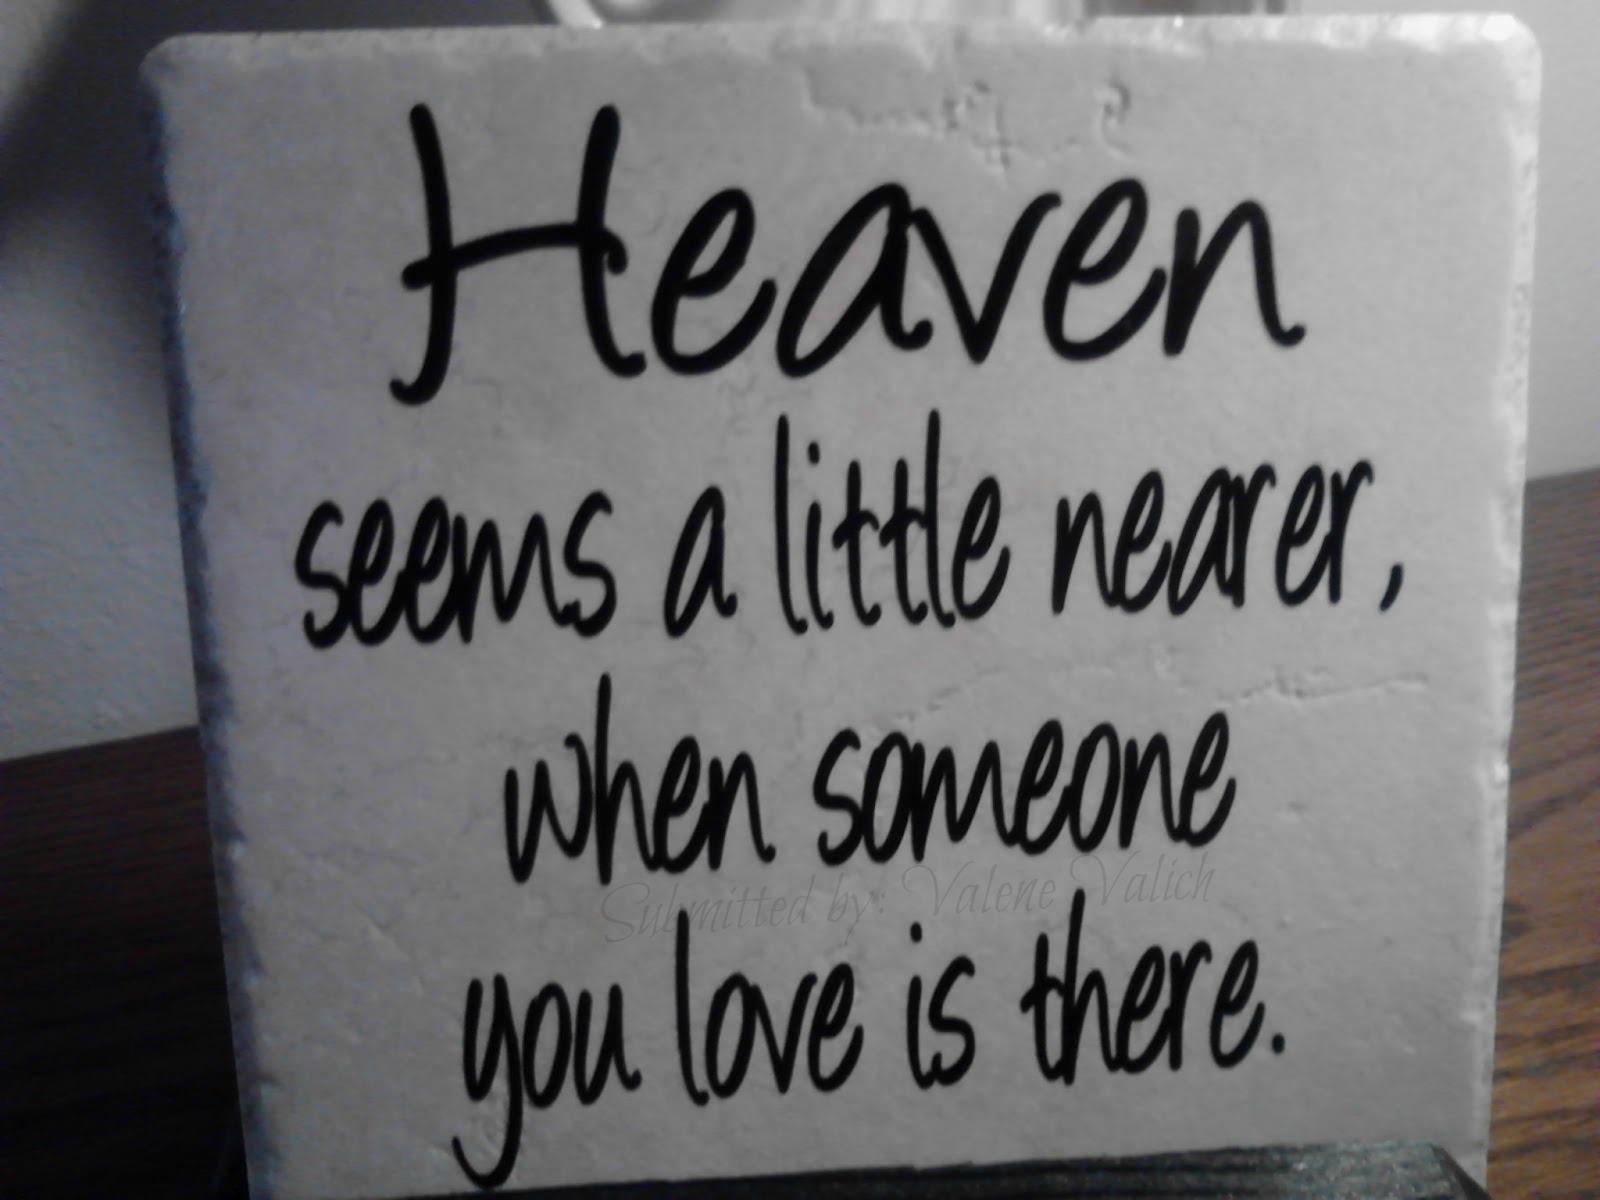 Heaven
seems a little nearer,
when someone
Submitted by: Valene Valich
you love is there.